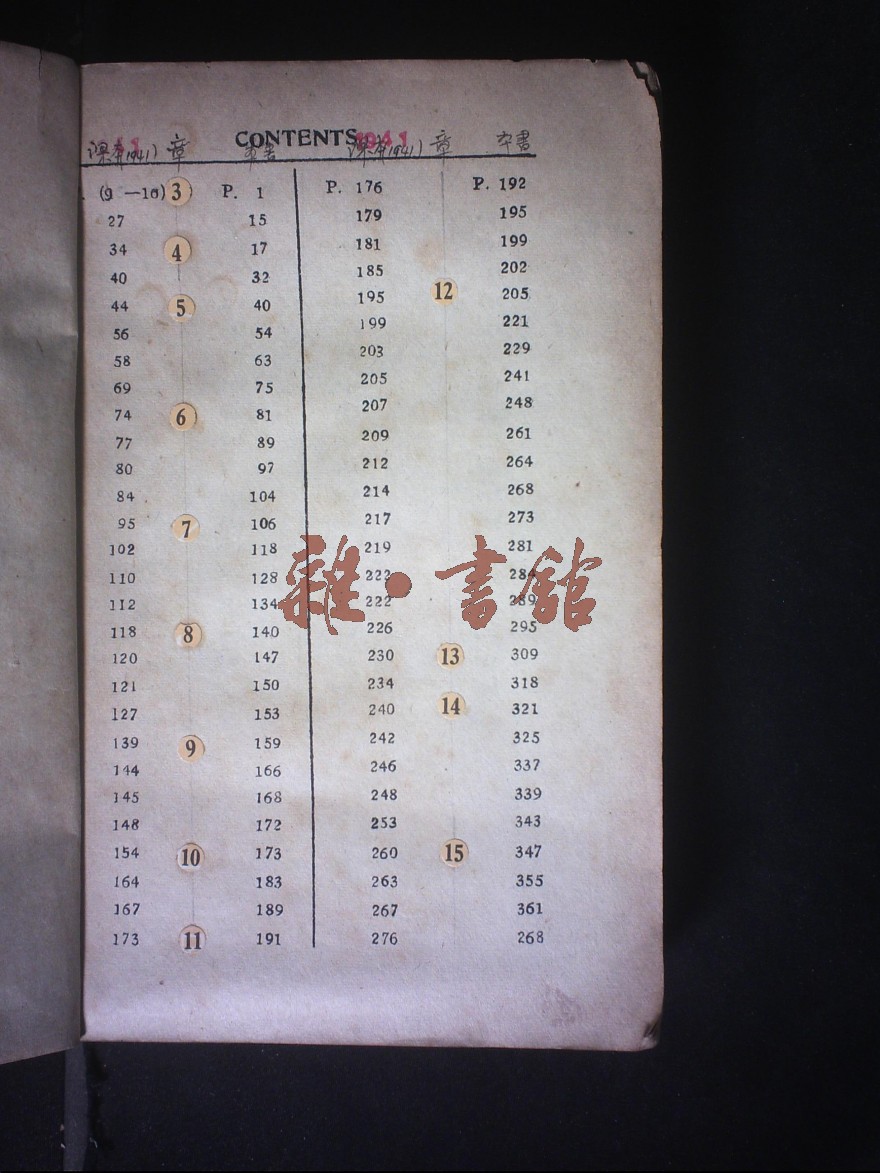 CONTENTS
課本(1941) 章 本書 課本(1941) 章 本書
(9 —10) 3 P. 1 P. 176 P. 192
27 15 179 195
34 4 17 181 199
40 32 185 202
44 5 40 195 12 205
56 54 199 221
58 63 203 229
69 75 205 241
74 6 81 207 248
77 89 209 261
80 97 212 264
84 104 214 268
95 7 106 217 273
102 118 219 281
110 128 222 284
112 134 222 289
118 8 140 226 295
120 147 230 13 309
121 150 234 318
127 153 240 14 321
139 9 159 242 325
144 166 246 337
145 168 248 339
148 172 253 343
154 10 173 260 15 347
164 183 263 355
167 189 267 361
173 11 191 276 268
雜·書館